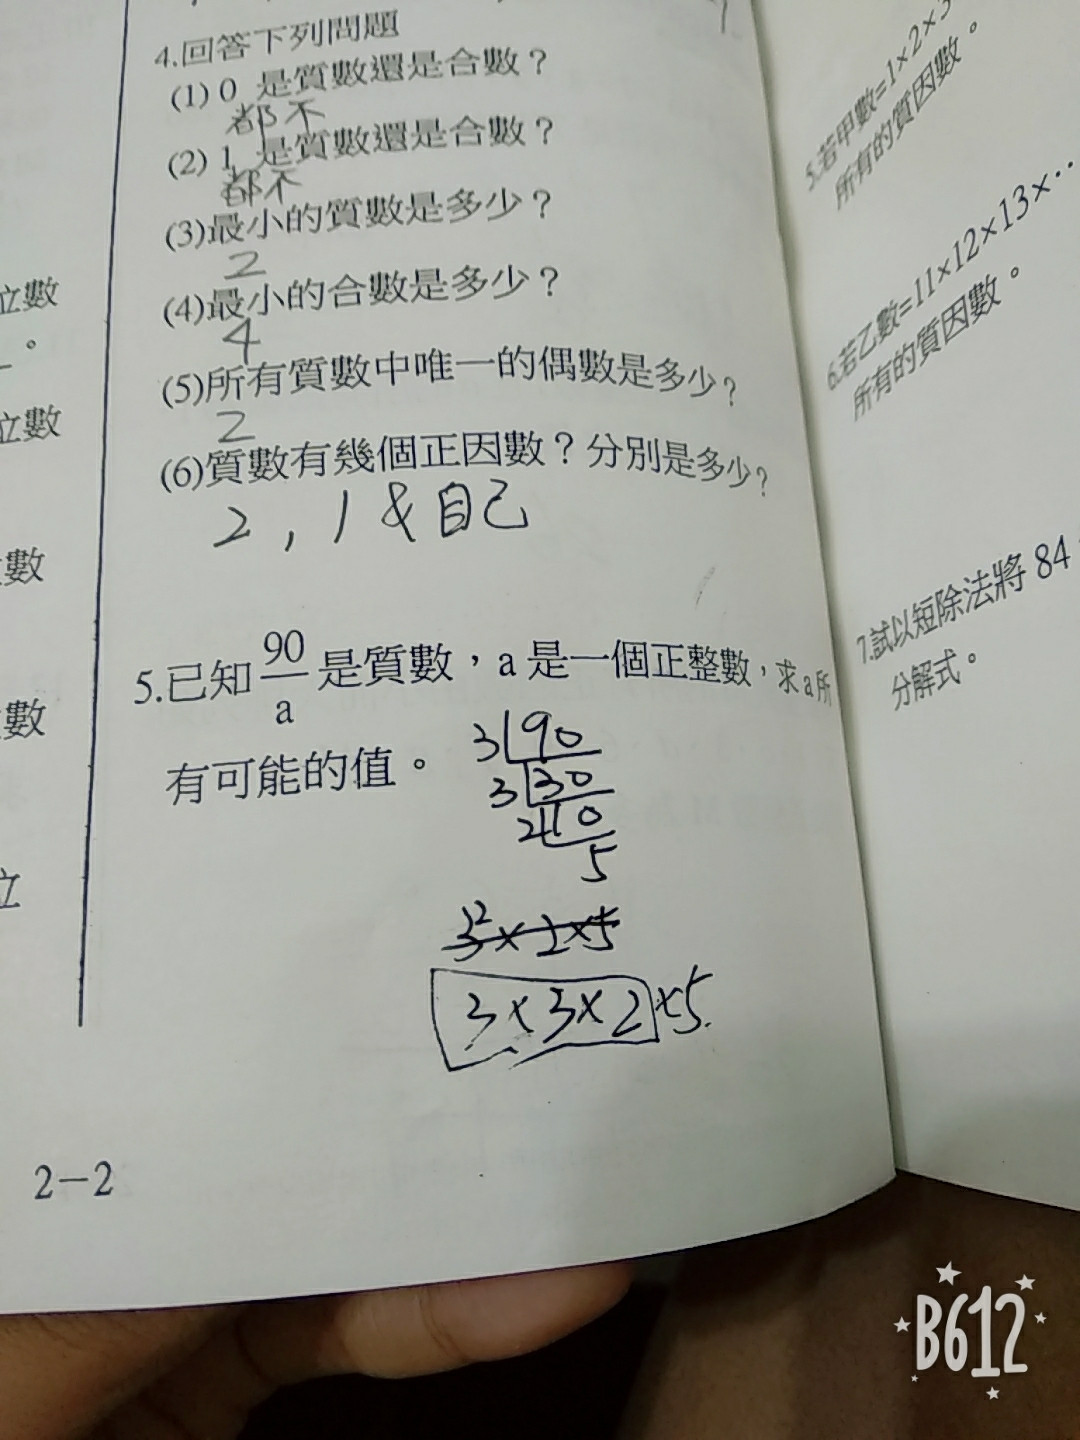 4.回答下列問題
(1) 0 是質數還是合數？
都不
(2) 1 是質數還是合數？
都不
(3)最小的質數是多少？
2
(4)最小的合數是多少？
4
(5)所有質數中唯一的偶數是多少？
2
(6)質數有幾個正因數？分別是多少？
2 , 1 & 自己
5.已知 90/a 是質數，a 是一個正整數，求 a 所
有可能的值。
3 90
3 30
2 10
5
3²×2×5
3×3×2×5
2－2
立數
。
立數
數
數
立
5.若甲數=1×2×3
所有的質因數。
6.若乙數=11×12×13×‧‧
所有的質因數。
7.試以短除法將 84
分解式。
B612